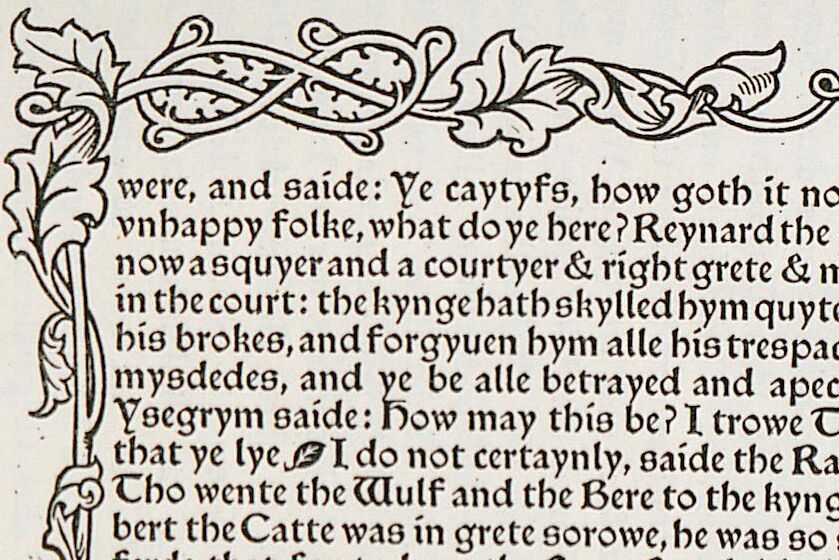 were, and saide: Ye caytyfs, how goth it
vnhappy folke, what do ye here? Reynard the
now a squyer and a courtyer & right grete &
in the court: the kynge hath skylled hym
his brokes, and forgyuen hym alle his
mysdedes, and ye be alle betrayed and
Ysegrym saide: How may this be? I trowe
that ye lye ❧ I do not certaynly, saide the
Tho wente the Wulf and the Bere to the
bert the Catte was in grete sorowe, he was